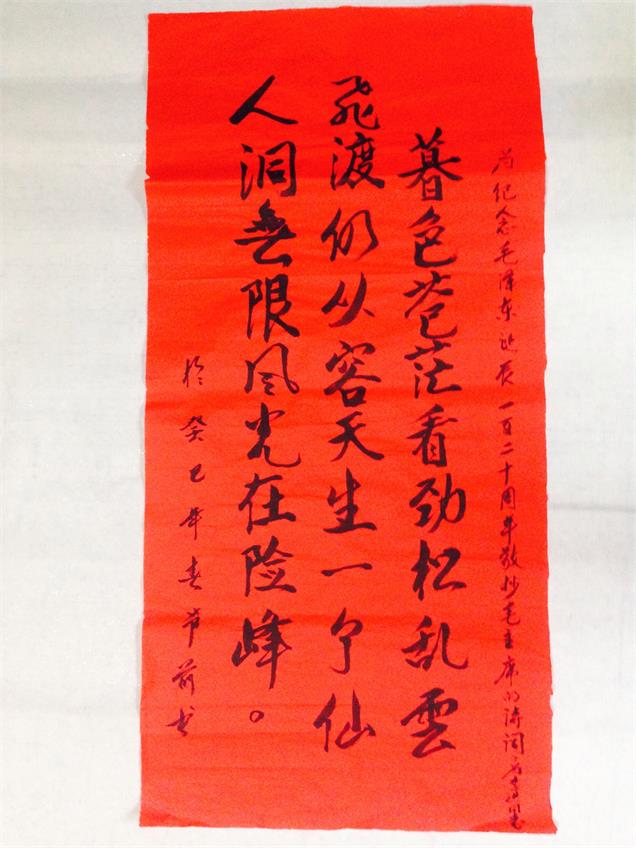 为纪念毛泽东诞辰一百二十周年敬抄毛主席的诗词
暮色苍茫看劲松乱雲
飛渡仍从容天生一个仙
人洞無限风光在险峰。
於癸巳年春节前书